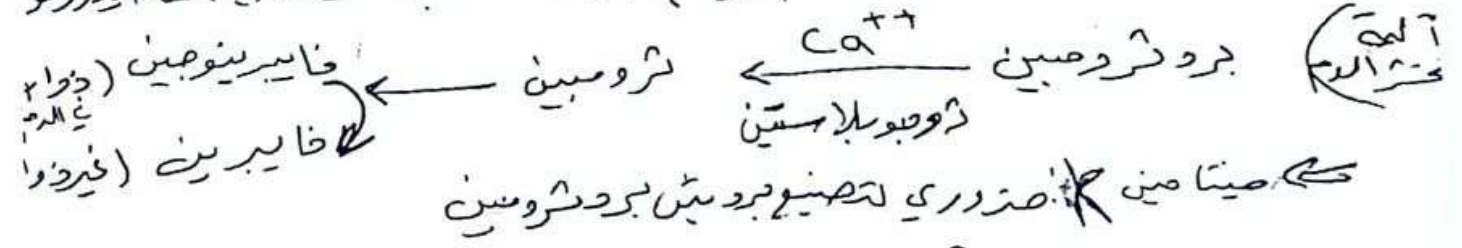 آلية تخثر الدم) بروثرومبين ← Ca++ ثرومبوبلاستين ثرومبين ← فايبرينوجين (ذواب في الدم
فايبرين (غير ذوا
فيتامين K: ضروري لتصنيع بروتين بروثرومبين